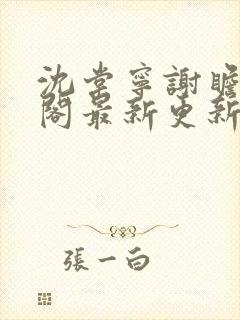 沈棠寧謝瞻
閣最新更新
張一白